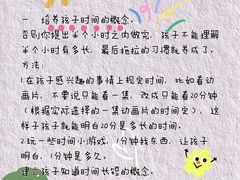 一 培养孩子时间的概念.
否则你提出半个小时之内做完. 孩子不能理解
半个小时有多长. 最后拖拉的习惯就养成了.
方法:
1.在孩子感兴趣的事情上规定时间. 比如看动
画片. 不要说只能看一集. 改成只能看20分钟
(根据实际选择的一集动画片的时间定). 这
样子孩子就能明白20分是多长的时间.
2.玩一些时间小游戏. 1分钟找东西. 让孩子
明白. 1分钟是多久.
建立孩子知道时间长短的概念.